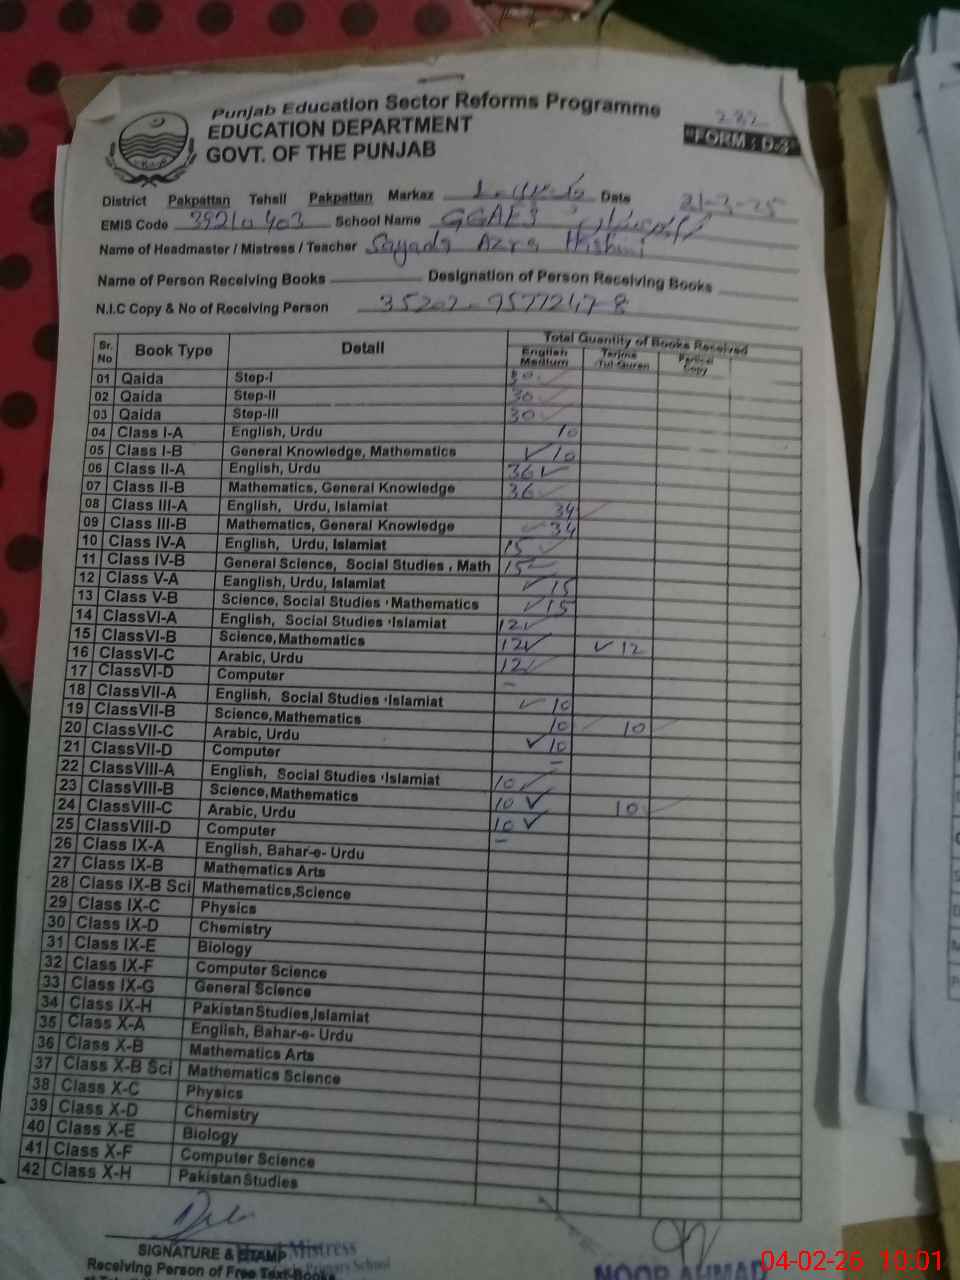 Punjab Education Sector Reforms Programme
EDUCATION DEPARTMENT
GOVT. OF THE PUNJAB
232
"FORM : D-3"
District Pakpattan Tehsil Pakpattan Markaz Date 21-3-25
EMIS Code 39210403 School Name GGAES
Name of Headmaster / Mistress / Teacher Sayada Azra Hashmi
Name of Person Receiving Books Designation of Person Receiving Books
N.I.C Copy & No of Receiving Person 35202-9577247-8
Sr. No Book Type Detail Total Quantity of Books Received
English Medium Tarjma Tul Quran Partical Copy
01 Qaida Step-I 30
02 Qaida Step-II 30
03 Qaida Step-III 30
04 Class I-A English, Urdu 10
05 Class I-B General Knowledge, Mathematics ✓10
06 Class II-A English, Urdu 36✓
07 Class II-B Mathematics, General Knowledge 36✓
08 Class III-A English, Urdu, Islamiat 34
09 Class III-B Mathematics, General Knowledge ✓34
10 Class IV-A English, Urdu, Islamiat 15✓
11 Class IV-B General Science, Social Studies, Math 15✓
12 Class V-A Eanglish, Urdu, Islamiat ✓15
13 Class V-B Science, Social Studies, Mathematics ✓15
14 ClassVI-A English, Social Studies, Islamiat 12✓
15 ClassVI-B Science, Mathematics 12✓ ✓12
16 ClassVI-C Arabic, Urdu 12✓
17 ClassVI-D Computer –
18 ClassVII-A English, Social Studies, Islamiat ✓10
19 ClassVII-B Science, Mathematics 10✓ 10✓
20 ClassVII-C Arabic, Urdu ✓10
21 ClassVII-D Computer –
22 ClassVIII-A English, Social Studies, Islamiat 10✓
23 ClassVIII-B Science, Mathematics 10✓ 10✓
24 ClassVIII-C Arabic, Urdu 10✓
25 ClassVIII-D Computer –
26 Class IX-A English, Bahar-e- Urdu
27 Class IX-B Mathematics Arts
28 Class IX-B Sci Mathematics, Science
29 Class IX-C Physics
30 Class IX-D Chemistry
31 Class IX-E Biology
32 Class IX-F Computer Science
33 Class IX-G General Science
34 Class IX-H Pakistan Studies, Islamiat
35 Class X-A English, Bahar-e- Urdu
36 Class X-B Mathematics Arts
37 Class X-B Sci Mathematics Science
38 Class X-C Physics
39 Class X-D Chemistry
40 Class X-E Biology
41 Class X-F Computer Science
42 Class X-H Pakistan Studies
SIGNATURE & STAMP
Mistress
Receiving Person of Free Text Books
Primary School
NOOR AHMAD
04-02-26 10:01